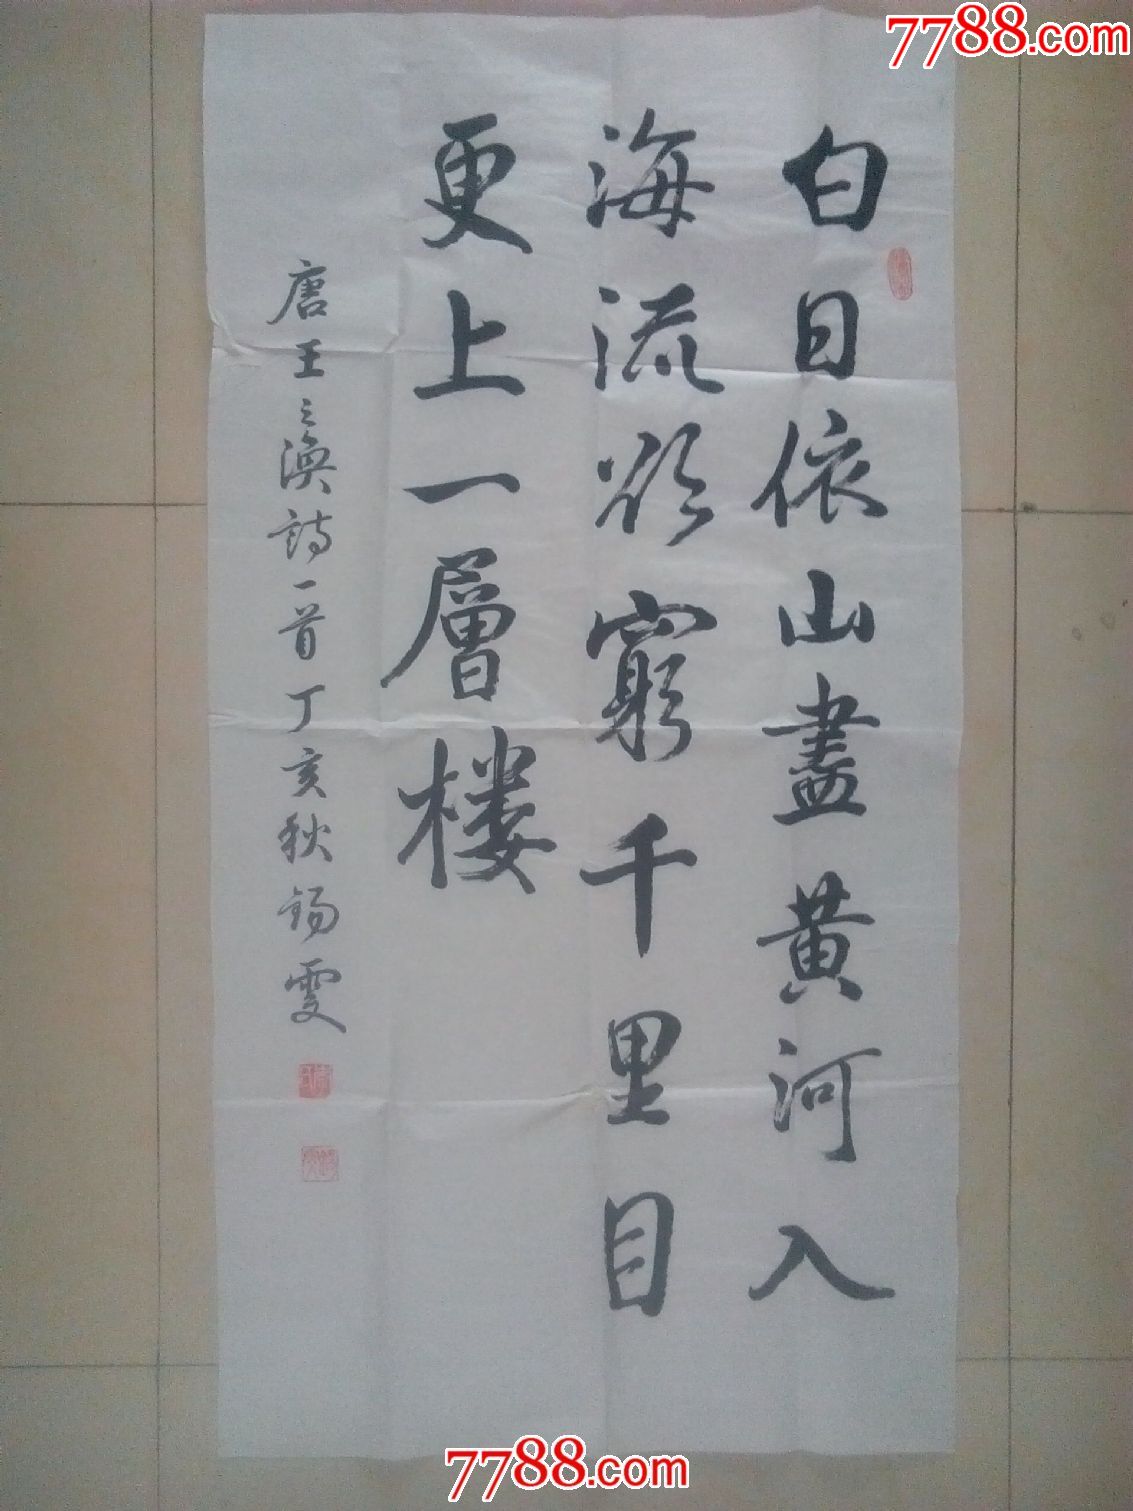 7788.com
白日依山盡黄河入
海流欲窮千里目
更上一層楼
唐王之渙詩一首丁亥秋錫雯
7788.com